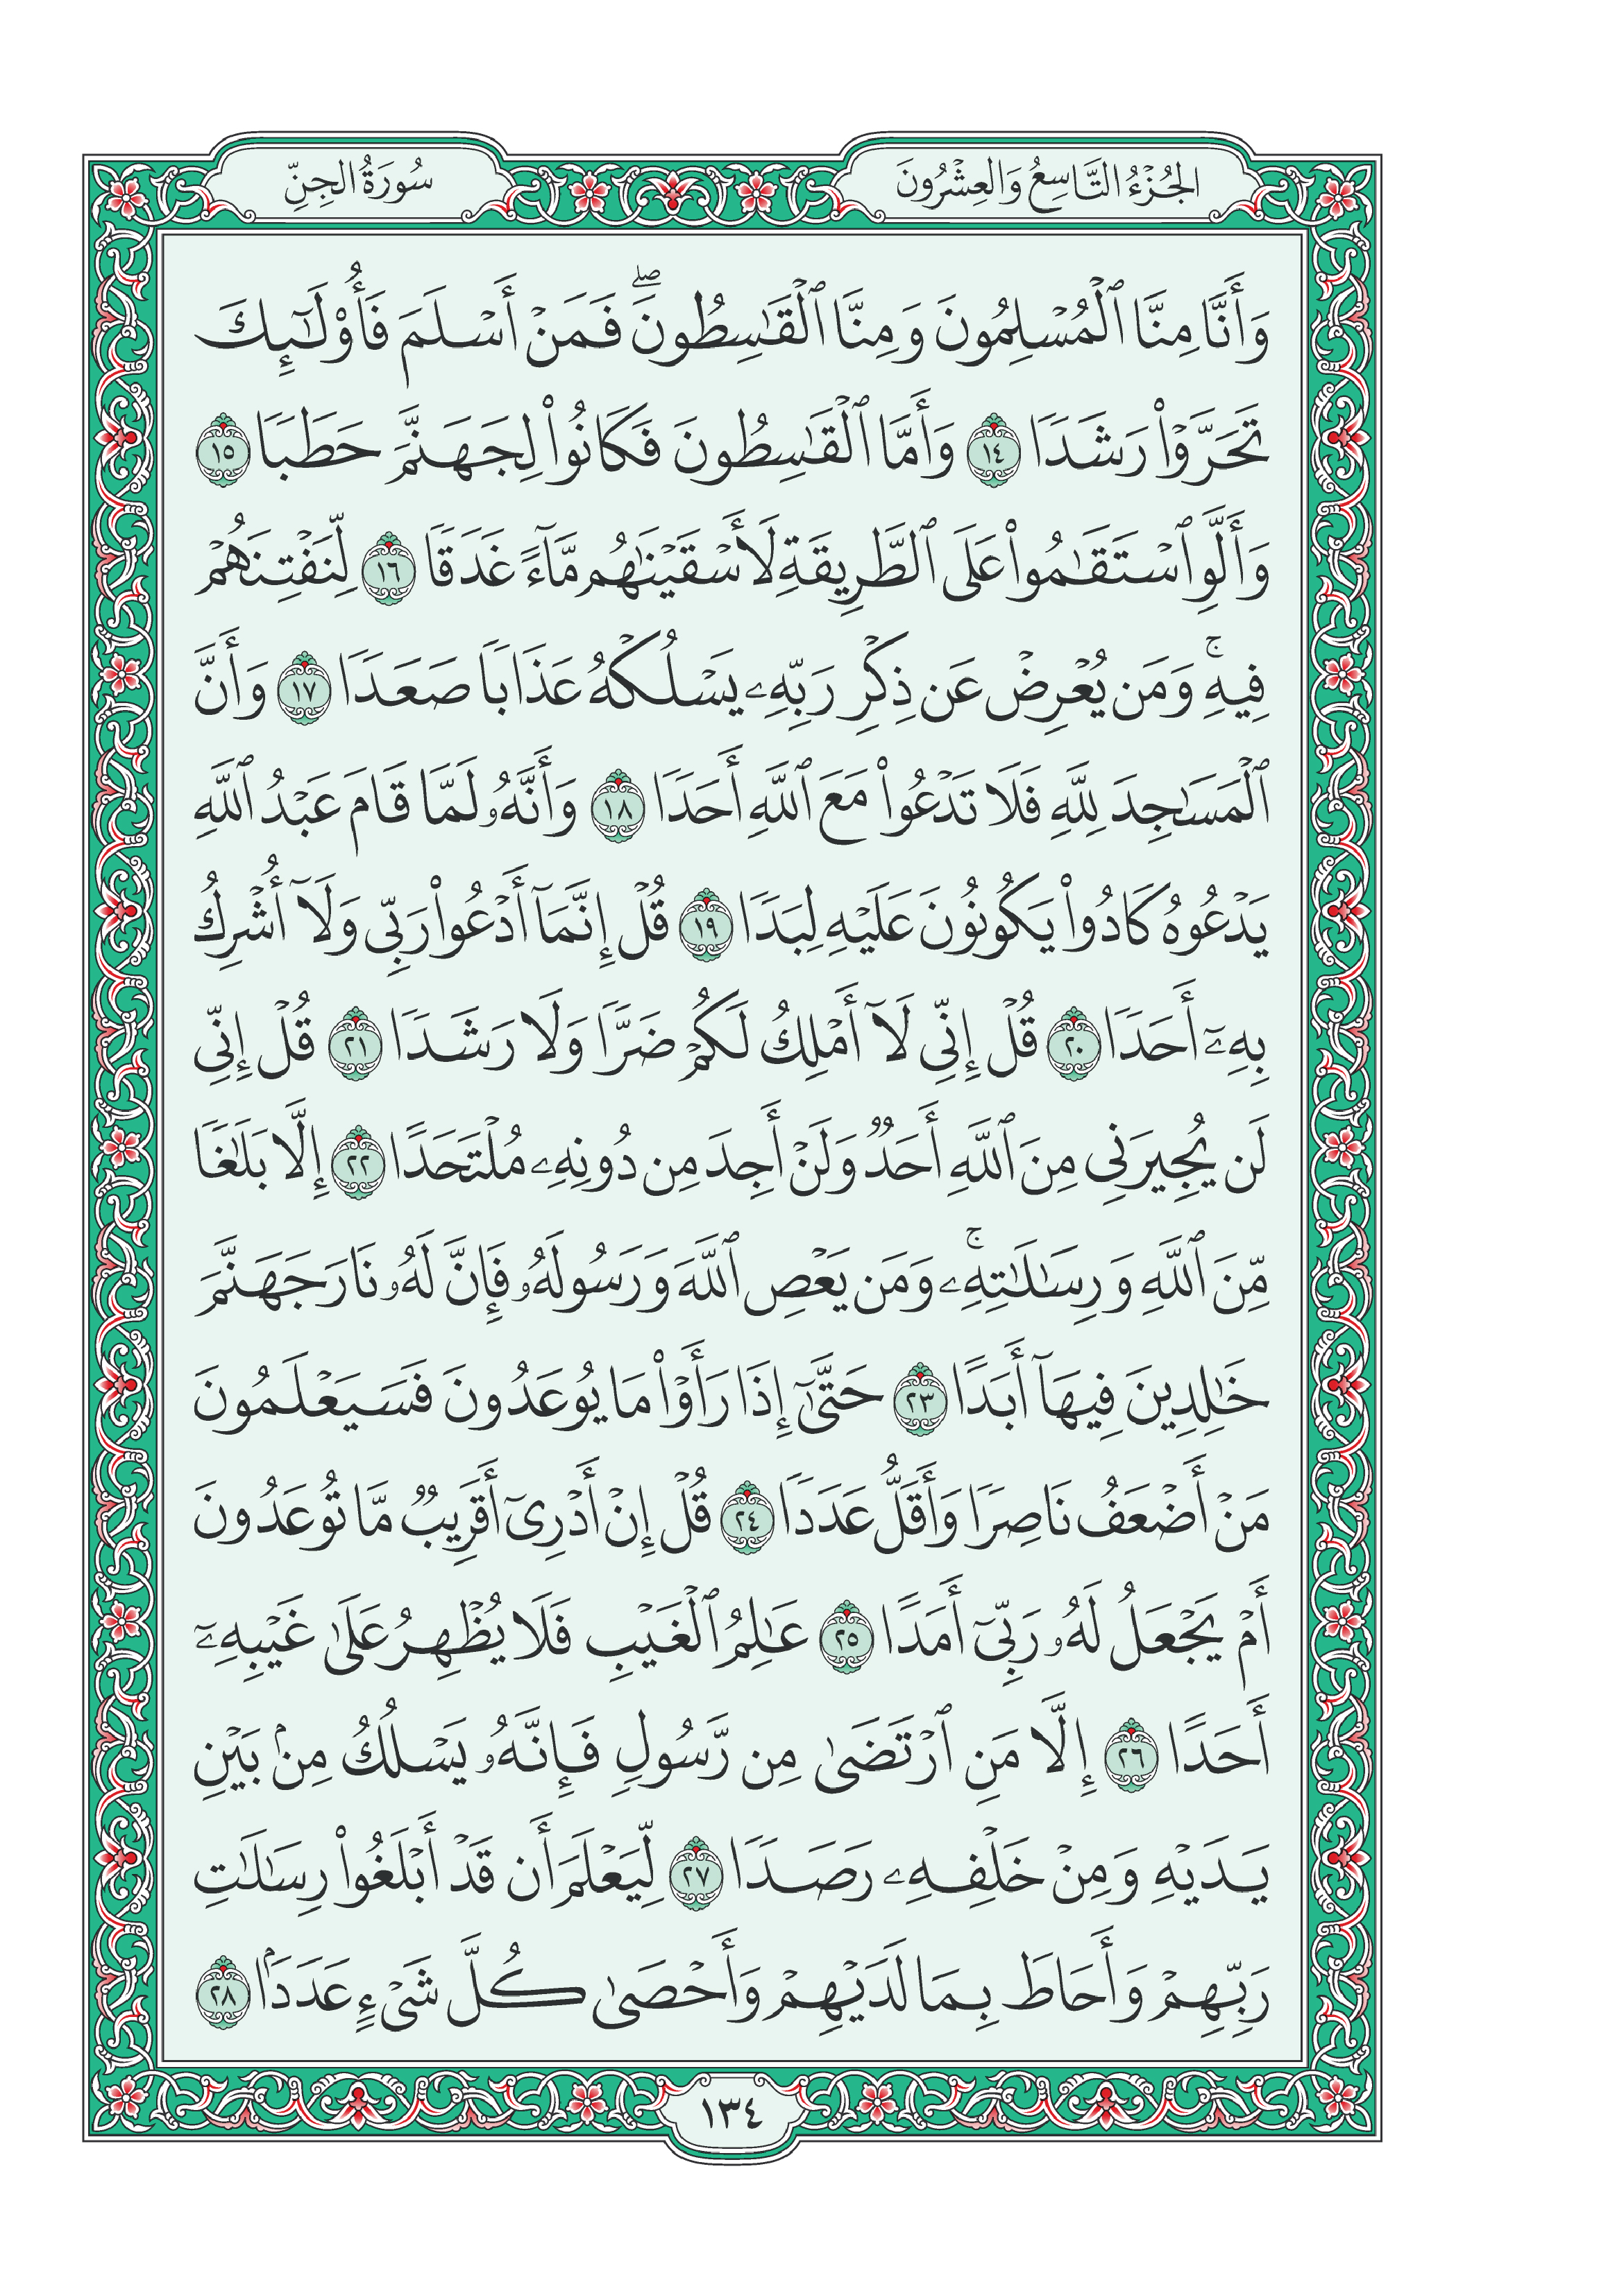 الجُزْءُ التَّاسِعُ وَالعِشْرُونَ
سُورَةُ الجِنِّ
وَأَنَّا مِنَّا ٱلْمُسْلِمُونَ وَمِنَّا ٱلْقَٰسِطُونَۖ فَمَنْ أَسْلَمَ فَأُو۟لَٰٓئِكَ
تَحَرَّوْا۟ رَشَدًا ١٤ وَأَمَّا ٱلْقَٰسِطُونَ فَكَانُوا۟ لِجَهَنَّمَ حَطَبًا ١٥
وَأَلَّوِ ٱسْتَقَٰمُوا۟ عَلَى ٱلطَّرِيقَةِ لَأَسْقَيْنَٰهُم مَّآءً غَدَقًا ١٦ لِّنَفْتِنَهُمْ
فِيهِۚ وَمَن يُعْرِضْ عَن ذِكْرِ رَبِّهِۦ يَسْلُكْهُ عَذَابًا صَعَدًا ١٧ وَأَنَّ
ٱلْمَسَٰجِدَ لِلَّهِ فَلَا تَدْعُوا۟ مَعَ ٱللَّهِ أَحَدًا ١٨ وَأَنَّهُۥ لَمَّا قَامَ عَبْدُ ٱللَّهِ
يَدْعُوهُ كَادُوا۟ يَكُونُونَ عَلَيْهِ لِبَدًا ١٩ قُلْ إِنَّمَآ أَدْعُوا۟ رَبِّى وَلَآ أُشْرِكُ
بِهِۦٓ أَحَدًا ٢٠ قُلْ إِنِّى لَآ أَمْلِكُ لَكُمْ ضَرًّا وَلَا رَشَدًا ٢١ قُلْ إِنِّى
لَن يُجِيرَنِى مِنَ ٱللَّهِ أَحَدٌ وَلَنْ أَجِدَ مِن دُونِهِۦ مُلْتَحَدًا ٢٢ إِلَّا بَلَٰغًا
مِّنَ ٱللَّهِ وَرِسَٰلَٰتِهِۦۚ وَمَن يَعْصِ ٱللَّهَ وَرَسُولَهُۥ فَإِنَّ لَهُۥ نَارَ جَهَنَّمَ
خَٰلِدِينَ فِيهَآ أَبَدًا ٢٣ حَتَّىٰٓ إِذَا رَأَوْا۟ مَا يُوعَدُونَ فَسَيَعْلَمُونَ
مَنْ أَضْعَفُ نَاصِرًا وَأَقَلُّ عَدَدًا ٢٤ قُلْ إِنْ أَدْرِىٓ أَقَرِيبٌ مَّا تُوعَدُونَ
أَمْ يَجْعَلُ لَهُۥ رَبِّىٓ أَمَدًا ٢٥ عَٰلِمُ ٱلْغَيْبِ فَلَا يُظْهِرُ عَلَىٰ غَيْبِهِۦٓ
أَحَدًا ٢٦ إِلَّا مَنِ ٱرْتَضَىٰ مِن رَّسُولٍ فَإِنَّهُۥ يَسْلُكُ مِنۢ بَيْنِ
يَدَيْهِ وَمِنْ خَلْفِهِۦ رَصَدًا ٢٧ لِّيَعْلَمَ أَن قَدْ أَبْلَغُوا۟ رِسَٰلَٰتِ
رَبِّهِمْ وَأَحَاطَ بِمَا لَدَيْهِمْ وَأَحْصَىٰ كُلَّ شَىْءٍ عَدَدًۢا ٢٨
١٣٤